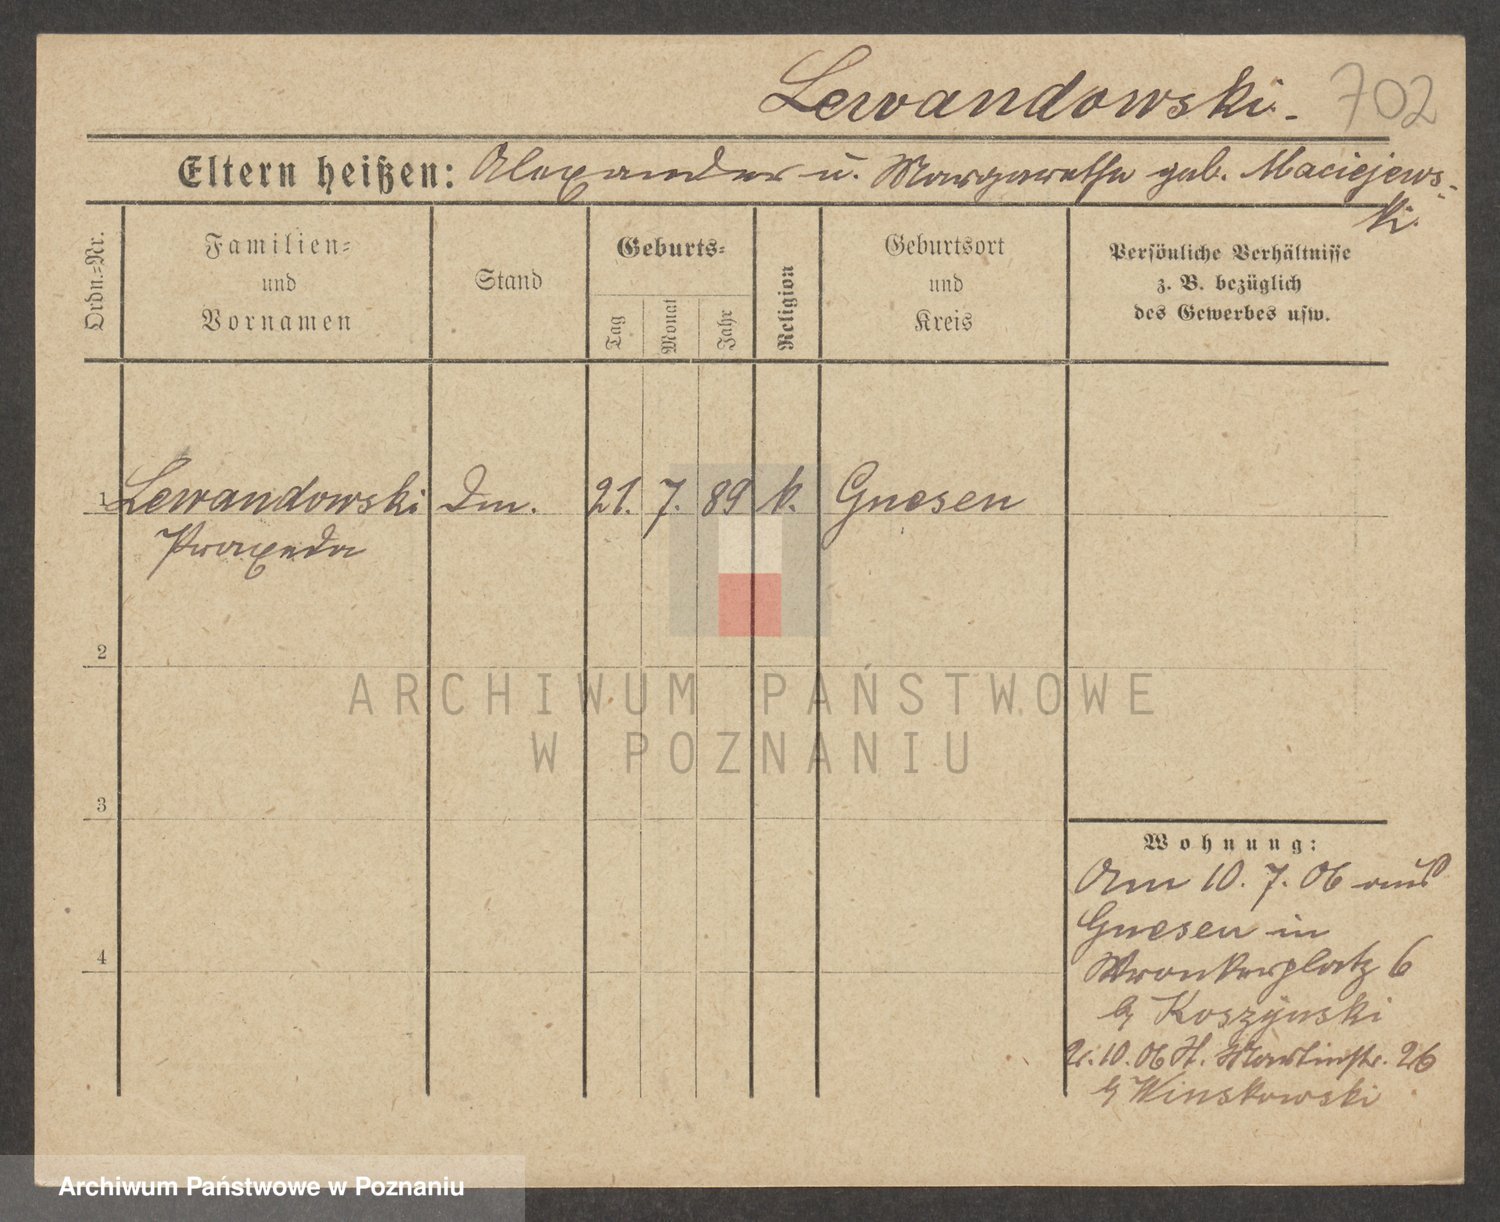 Lewandowski. 702
Eltern heißen: Alexander u. Margarethe geb. Maciejews-
ki.
Ordn.=Nr.
Familien=
und
Vornamen
Stand
Geburts=
Tag
Monat
Jahr
Religion
Geburtsort
und
Kreis
Persönliche Verhältnisse
z. B. bezüglich
des Gewerbes usw.
1 Lewandowski Dm. 21. 7. 89 k. Gnesen
Praxeda
2
3
4
Wohnung:
Am 10. 7. 06 aus
Gnesen in
Wronkerplatz 6
b/ Koszÿnski
2. 10. 06 St. Martinstr. 26
b/ Winskowski
ARCHIWUM PAŃSTWOWE
W POZNANIU
Archiwum Państwowe w Poznaniu